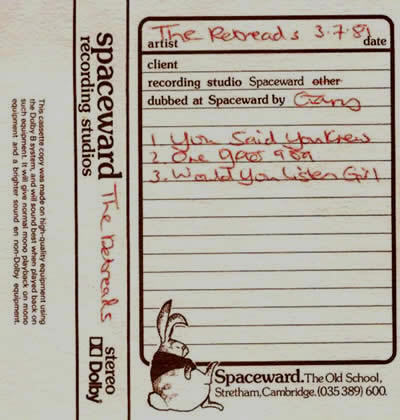 This cassette copy was made on high-quality equipment using
the Dolby B system, and will sound best when played back on
such equipment. It will give normal mono playback on mono
equipment and a brighter sound on non-Dolby equipment.
spaceward
recording studios
The Retreads
stereo
Dolby
artist The Retreads 3.7.81 date
client
recording studio Spaceward other
dubbed at Spaceward by Gary
1 You Said You Knew
2. One after 909
3. Would You Listen Girl
Spaceward. The Old School,
Stretham, Cambridge. (035 389) 600.